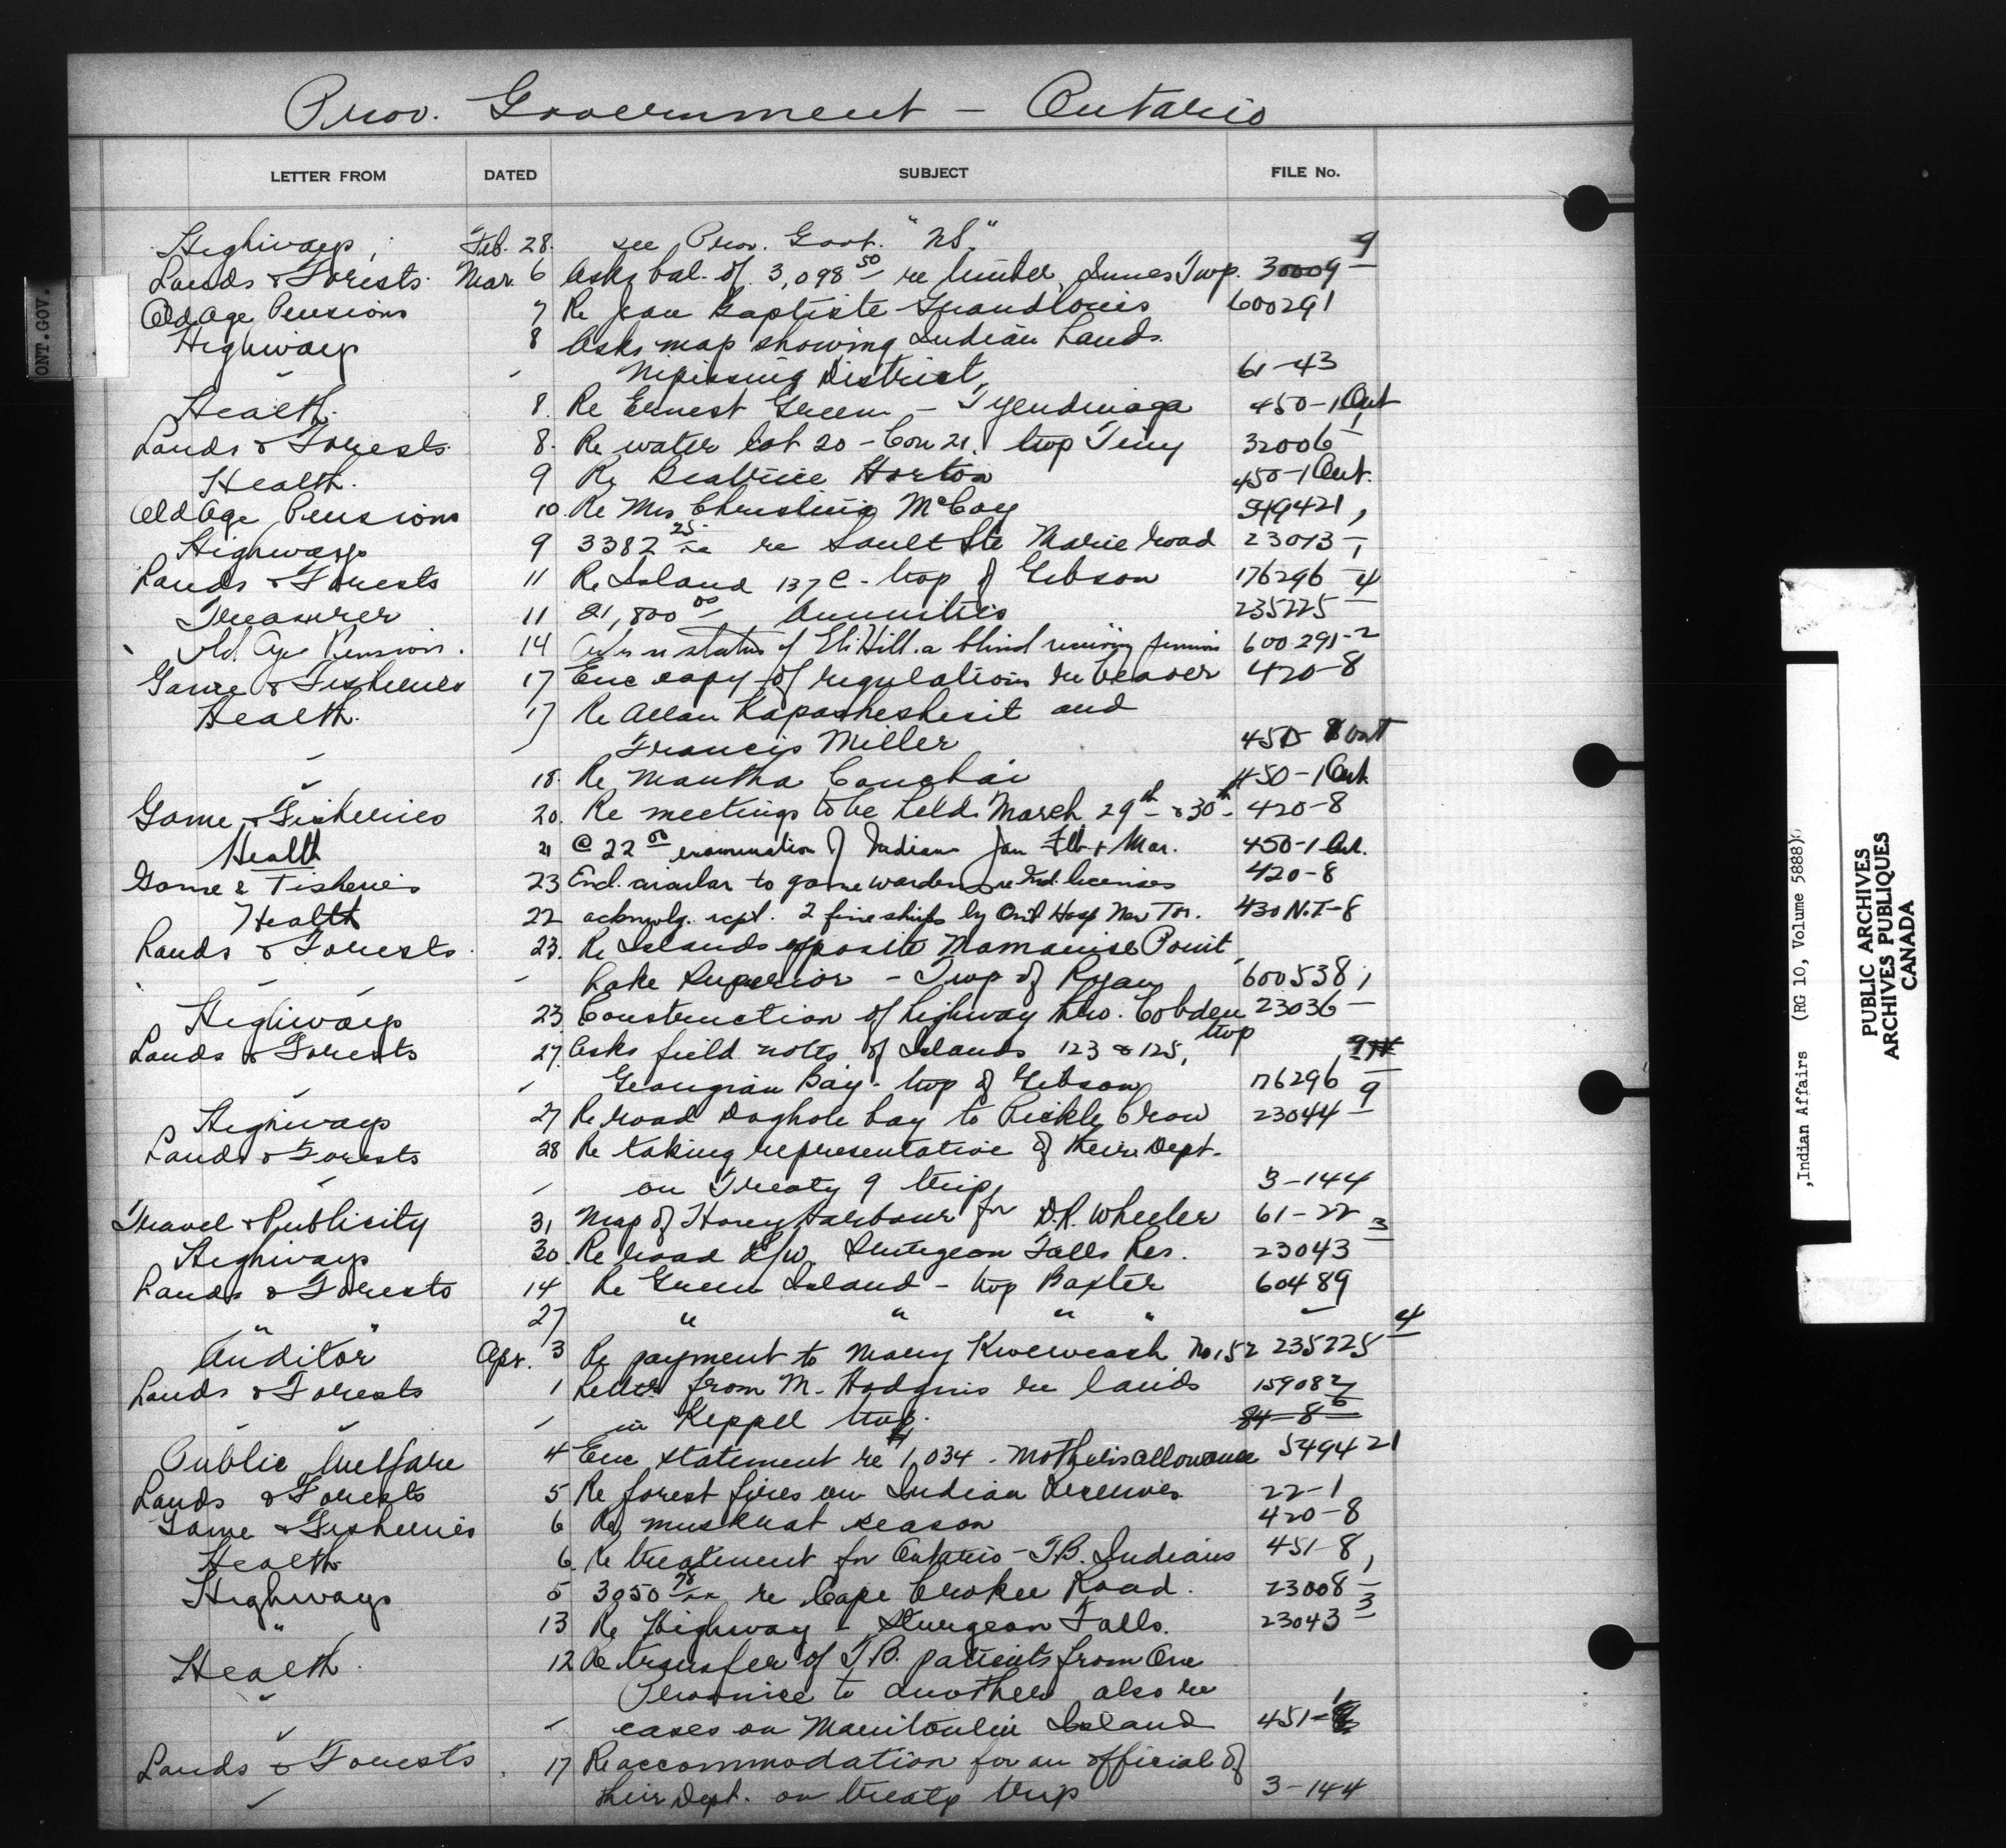 Prov. Government - Ontario
LETTER FROM DATED SUBJECT FILE No.
Highways, Feb. 28. see Prov. Govt. "NS."
Lands & Forests. Mar. 6 Asks bal. of 3,098 50 re timber, Innes Twp. 30009 9
Old Age Pensions 7 Re Jean Baptiste Grandlouis 600291
Highways 8 Asks map showing Indian Lands
Nipissing District, 61-43
Health. 8. Re Ernest Green - Tyendinaga 450-1 Ont
Lands & Forests. 8. Re water lot 20 - Con 21, twp Tiny 32006 1
Health. 9 Re Beatrice Horton 450-1 Ont.
Old Age Pensions 10. Re Mrs Christina McCoy 549421,
Highways 9 3382 25 re Sault Ste Marie road 23013-1
Lands & Forests 11 Re Island 137 C - twp of Gibson 176296-4
Treasurer 11 21,800 00 Annuities 235225
Old Age Pension. 14 re status of Eli Hill. a blind receiving pension 600291-2
Game & Fisheries 17 Enc copy of regulations re beaver 420-8
Health. 17 Re Allan Kapasheshesit and
Francis Miller Ont
18. Re Mantha 450-1 Ont.
Game & Fisheries 20. Re meetings to be held March 29th & 30th 420-8
Health 21 @ 22 00 examination of Indians Jan Feb + Mar. 450-1 Ont.
Game & Fisheries 23 Encl. circular to game wardens re Ind. licenses 420-8
Health 22 acknwlg. rcpt. 2 by Ont Hosp New Tor. 430 N.T-8
Lands & Forests. 23. Re Islands opposite Mamainse Point
Lake Superior - Twp of Ryan 600538,
Highways 23 Construction of highway thro. Cobden twp 23036
Lands & Forests 27. Asks field notes of Islands 123 & 125,
Georgian Bay - twp of Gibson 176296 9
Highways 27 Re road Doghole bay to Pickle Crow 23044 9
Lands & Forests 28 Re taking representative of their Dept.
on Treaty 9 trip, 3-144
Travel & Publicity 31 Map of Honey Harbour for D.R. Wheeler 61-22
Highways 30. Re road R/W. Sturgeon Falls Res. 23043 3
Lands & Forests 14 Re Green Island - twp Baxter 60489
" " 27 " " " "
Auditor Apr. 3 Re payment to Mary Kweweash No 152 235225 4
Lands & Forests 1 Letter from M. Hodgins re lands 159082
in Keppel twp. 84-8
Public Welfare 4 Enc statement re 1,034 - Mother's allowance 549421
Lands & Forests 5 Re forest fires on Indian Reserves 22-1
Game & Fisheries 6 Re muskrat season 420-8
Health 6. Re treatment for Ontario - T.B. Indians 451-8,
Highways 5 3050 re Cape Croker Road. 23008
" 13 Re Highway - Sturgeon Falls. 23043 3
Health. 12 Re transfer of T.B. patients from One
Province to another also re
cases on Manitoulin Island 451-1
Lands & Forests 17 Re accommodation for an official of
their Dept. on treaty trip 3-144
ONT.GOV.
,Indian Affairs (RG 10, Volume 5888)
PUBLIC ARCHIVES
ARCHIVES PUBLIQUES
CANADA